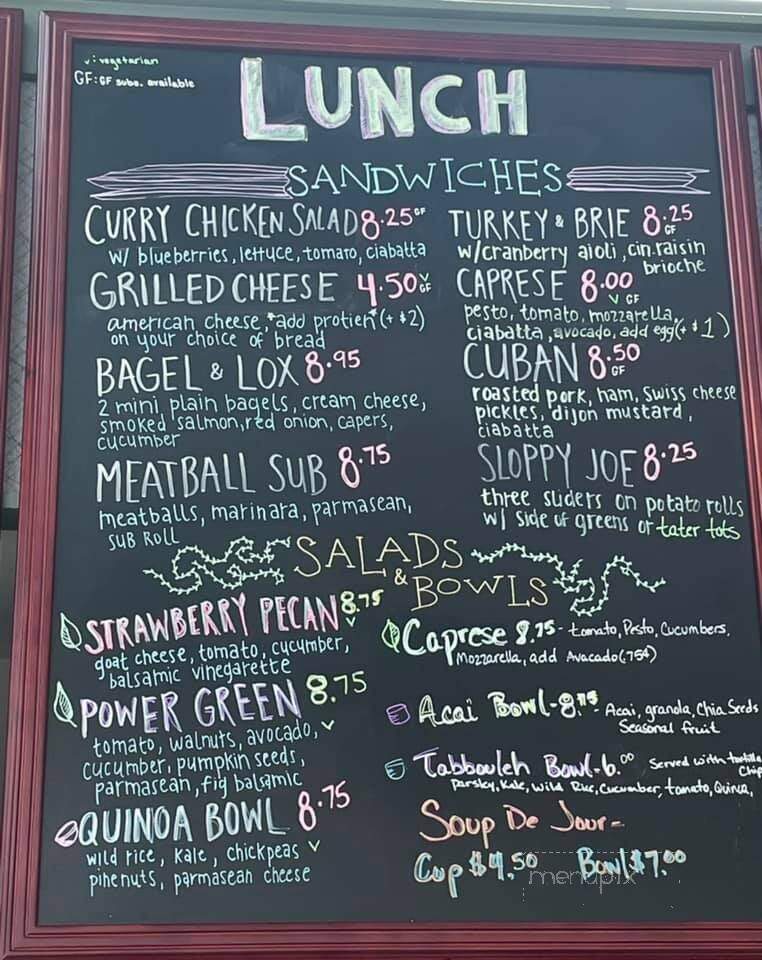 v: vegetarian
GF: GF subs. available
LUNCH
SANDWICHES
CURRY CHICKEN SALAD 8.25 GF
w/ blueberries, lettuce, tomato, ciabatta
GRILLED CHEESE 4.50 v GF
american cheese, *add protien* (+ $2)
on your choice of bread
BAGEL & LOX 8.95
2 mini plain bagels, cream cheese,
smoked salmon, red onion, capers,
cucumber
MEATBALL SUB 8.75
meatballs, marinara, parmasean,
SUB ROLL
TURKEY & BRIE 8.25
GF
w/cranberry aioli, cin. raisin
brioche
CAPRESE 8.00
v GF
pesto, tomato, mozzarella,
ciabatta, avocado, add egg (+ $1)
CUBAN 8.50
GF
roasted pork, ham, Swiss cheese
pickles, dijon mustard,
ciabatta
SLOPPY JOE 8.25
three sliders on potato rolls
w/ side of greens or tater tots
SALADS
& BOWLS
STRAWBERRY PECAN 8.75
v
goat cheese, tomato, cucumber,
balsamic vinegarette
POWER GREEN 8.75
tomato, walnuts, avocado, v
cucumber, pumpkin seeds,
parmasean, fig balsamic
QUINOA BOWL 8.75
wild rice, kale, chickpeas v
pinenuts, parmasean cheese
Caprese 8.75 - tomato, Pesto, Cucumbers,
Mozzarella, add Avacado (.75¢)
Acai Bowl - 8.75 - Acai, granola, Chia Seeds
Seasonal fruit
Tabbouleh Bowl - 6.00 Served with tortilla
Chip
Parsley, Kale, Wild Rice, Cucumber, tomato, Quinoa,
Soup De Jour -
Cup $4.50 Bowl $7.00
menupix